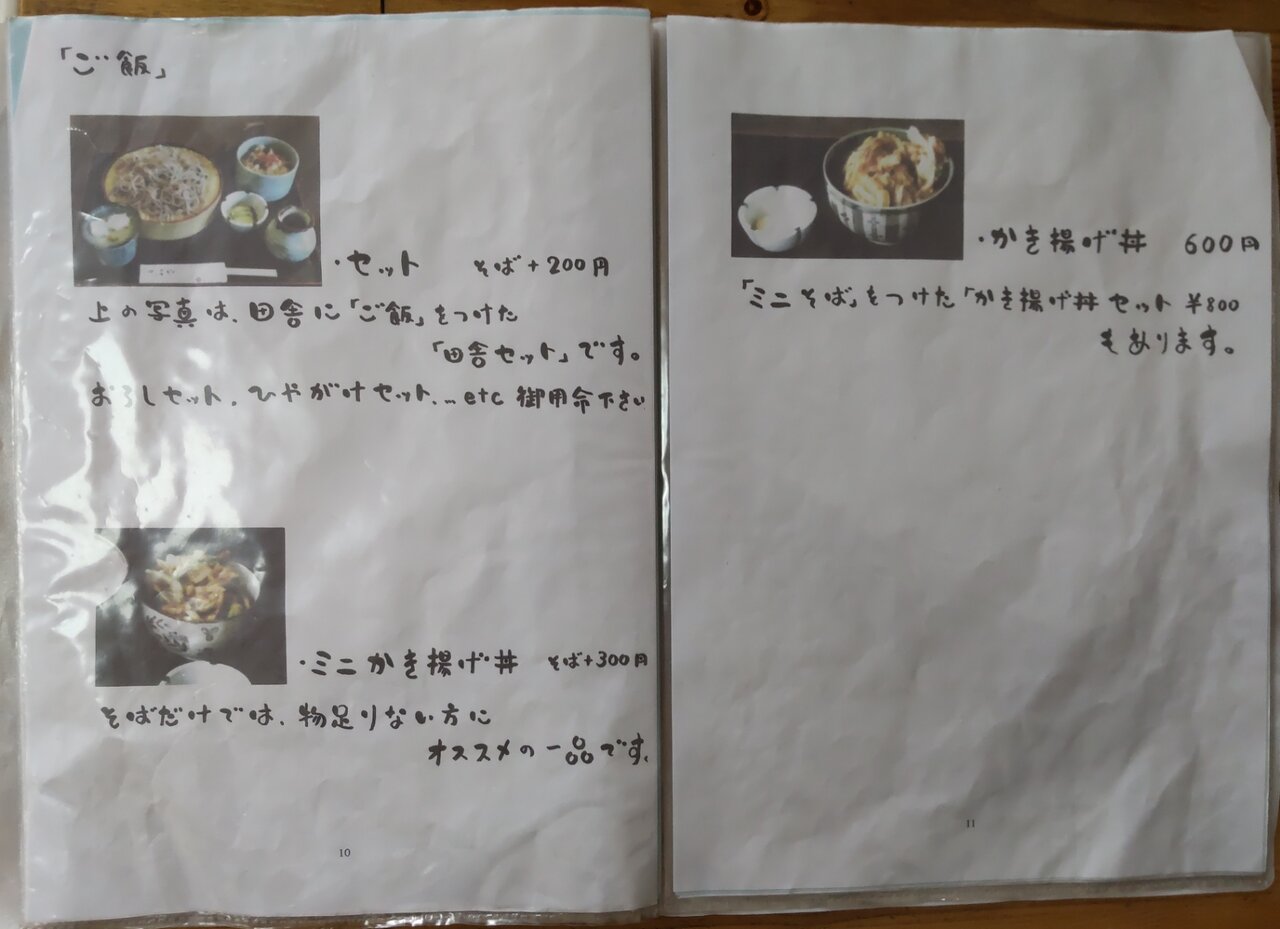 「ご飯」
・セット そば+200円
上の写真は、田舎に「ご飯」をつけた
「田舎セット」です。
おろしセット、ひやがけセット、…etc 御用命下さい
・ミニかき揚げ丼 そば+300円
そばだけでは、物足りない方に
オススメの一品です。
10
・かき揚げ丼 600円
「ミニそば」をつけた「かき揚げ丼セット ¥800
もあります。
11